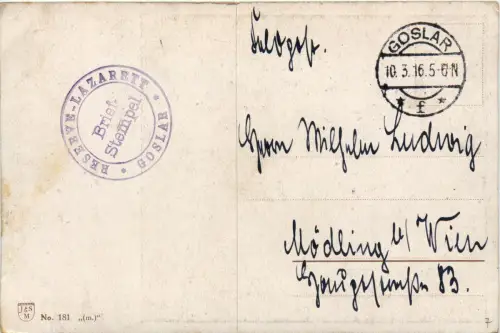 Feldpost.
GOSLAR
10.3.16.5-6N
* f *
RESERVE-LAZARETT * GOSLAR *
Brief-
Stempel
Herrn Wilhelm Ludwig
Mödling b/ Wien
83.
J&S
M
No. 181 „(m.)“